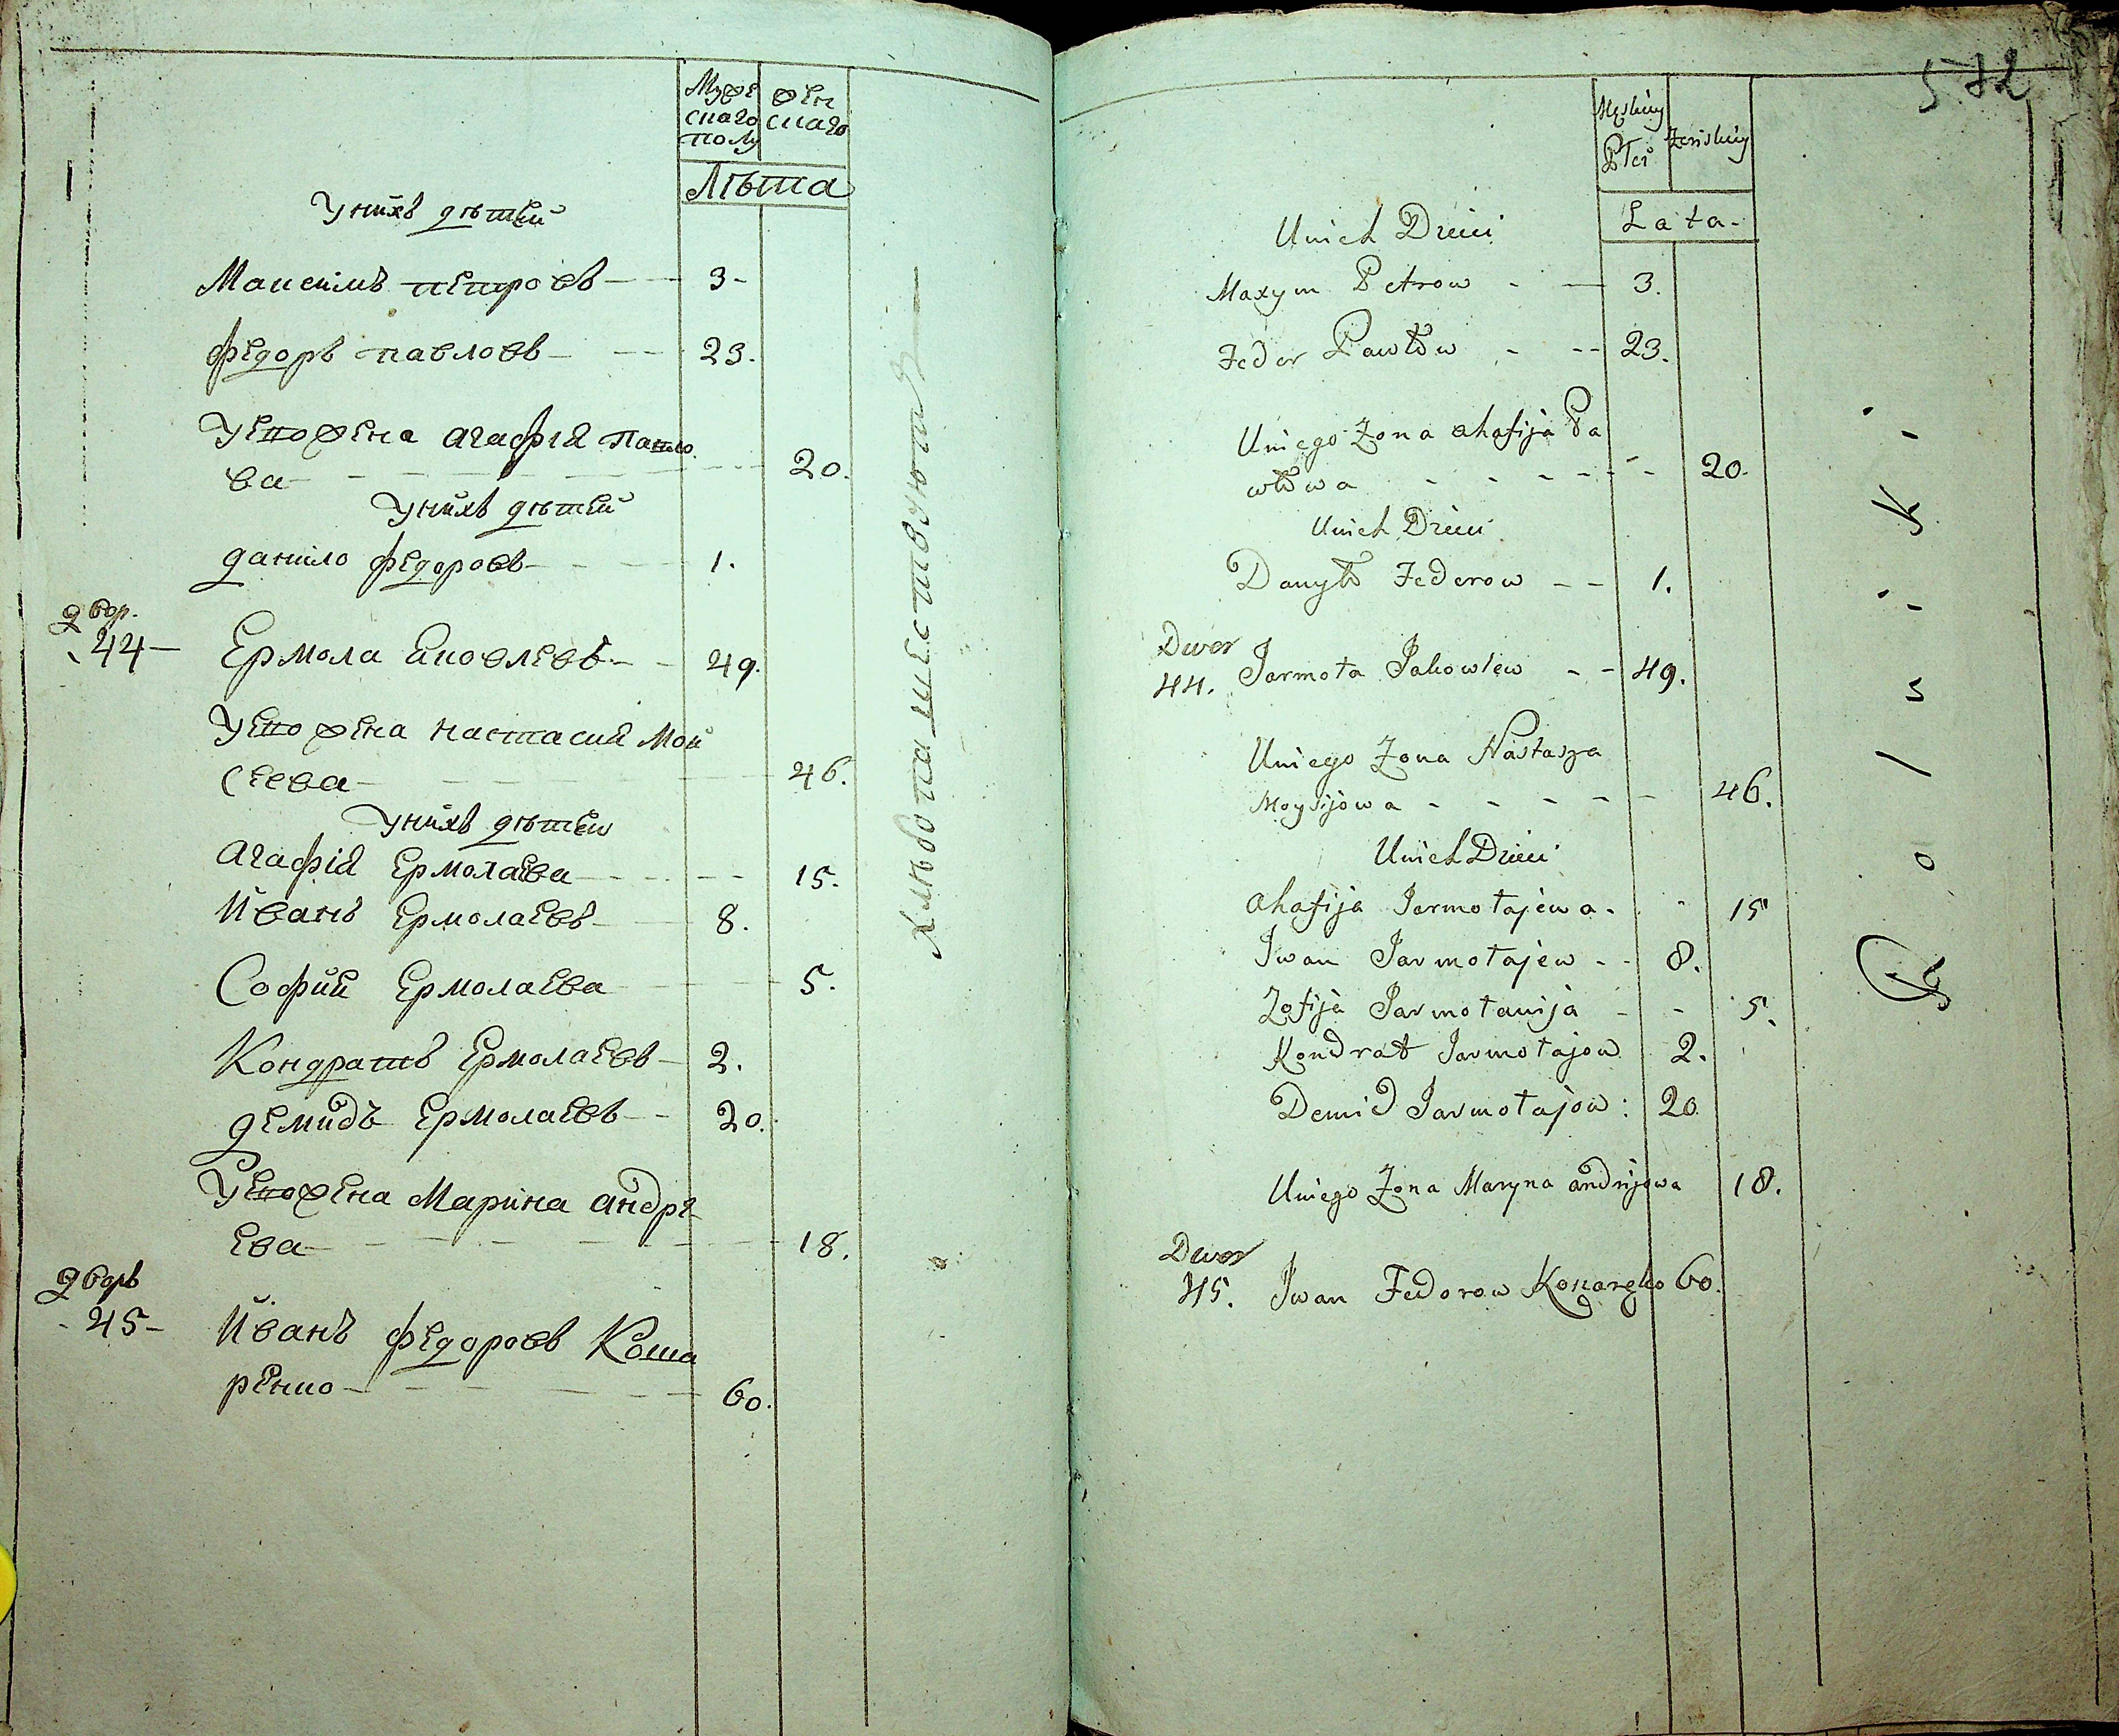 Муже
скаго
полу
жен
скаго
Лѣта
Унихъ дѣтей
Максимъ петровъ 3
федоръ павловъ 23.
Уево жена агафія Павло
ва 20.
Унихъ дѣтей
данило федоровъ 1.
двор.
44 Ермола яковлевъ 49.
Уево жена настасия Мои
сеева 46.
Унихъ дѣтеи
агафія Ермолаева 15.
Иванъ Ермолаевъ 8.
Софии Ермолаева 5.
Кондратъ Ермолаевъ 2.
демидъ Ермолаевъ 20.
Уево жена Марина андре
ева 18.
дворъ
45 Иванъ федоровъ Коша
ренко 60.
572
Męskiey
Płci
Żeńskiey
Lata
Unich Dzieci
Maxym Petrow 3.
Fedor Pawłow 23.
Uniego Żona ahafija Pa
włowa 20.
Unich Dzieci
Danyło Federow 1.
Dwor
44. Jarmoła Jakowlew 49.
Uniego Żona Nastazya
Moysijowa 46.
Unich Dzieci
ahafija Jarmołajewa 15
Iwan Jarmołajew 8.
Zofija Jarmołaiija 5.
Kondrat Jarmołajow 2.
Demid Jarmołajow: 20
Uniego Żona Maryna andrijowa 18.
Dwor
45. Iwan Fedorow 60.